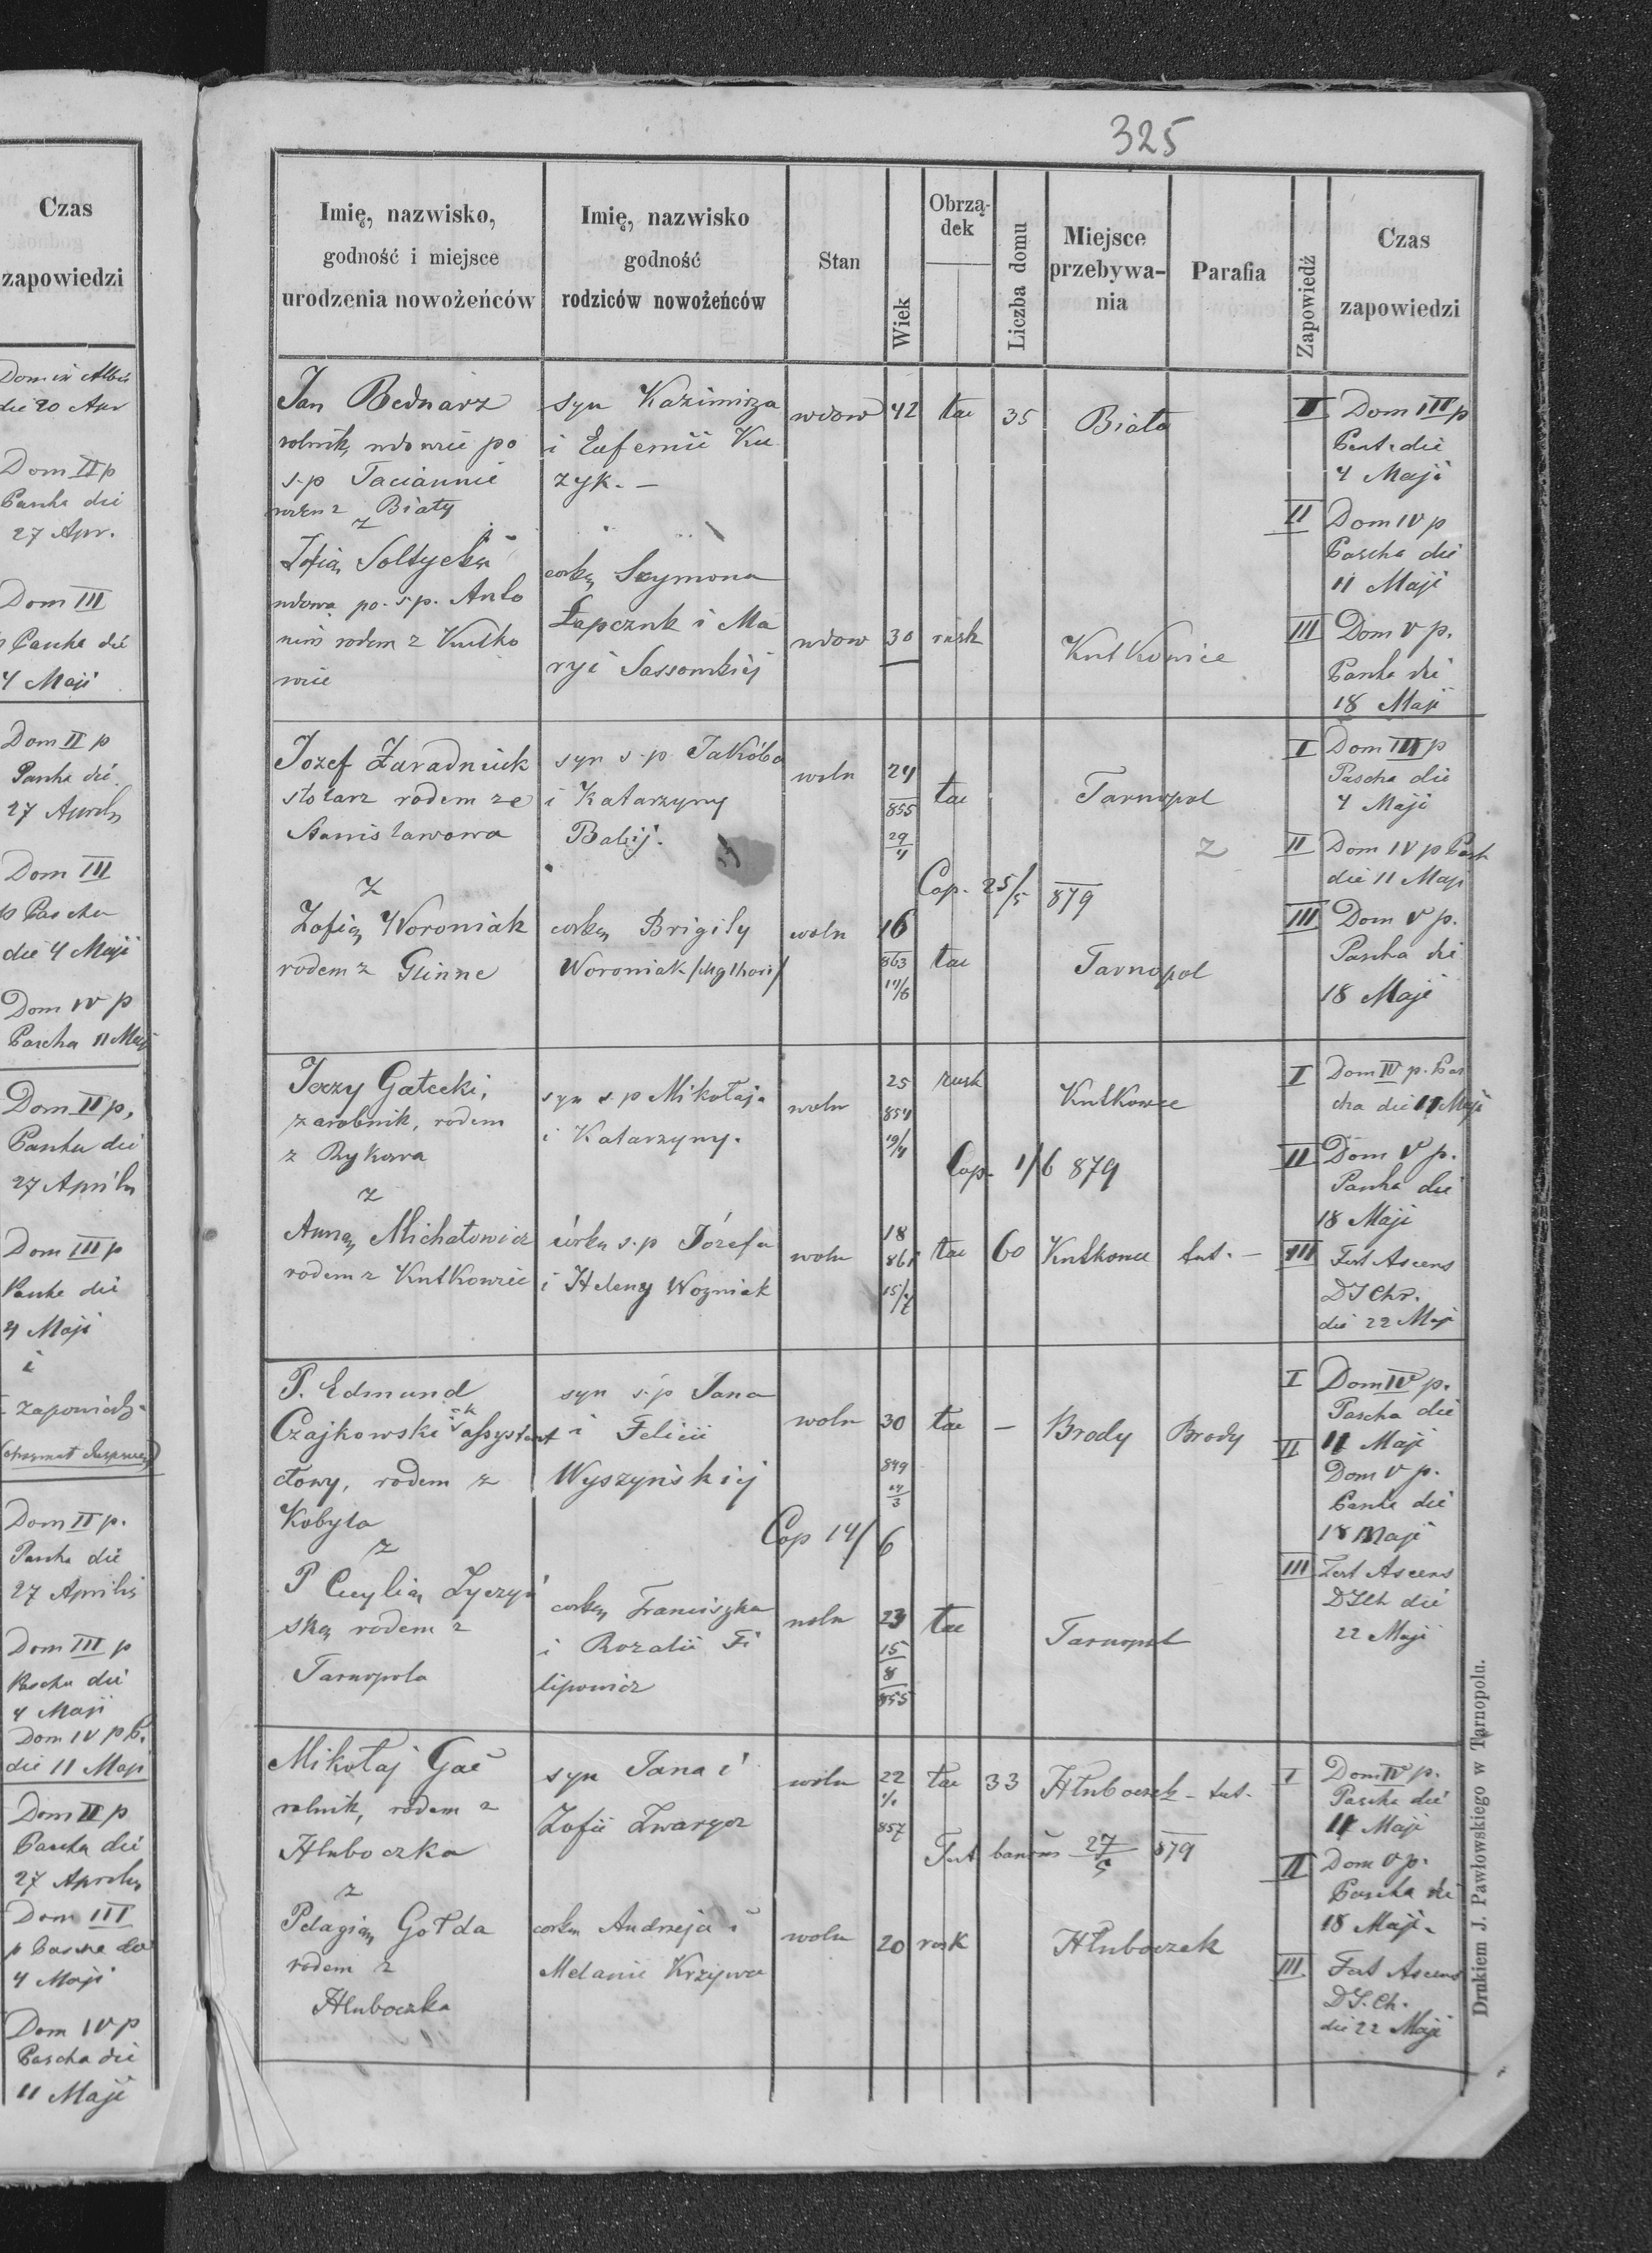 Czas
zapowiedzi
Dom in Albis
die 20 Apr
Dom II p
Pascha die
27 Apr.
Dom III
p Pascha die
4 Maji
Dom II p
Pascha die
27 Aprilis
Dom III
p Pascha
die 4 Maji
Dom IV p
Pascha 11 Maji
Dom II p,
Pascha die
27 Aprilis
Dom III p
Pascha die
4 Maji
i
zapowiedz
Dom II p.
Pascha die
27 Aprilis
Dom III p
Pascha die
4 Maji
Dom IV p P.
die 11 Maji
Dom II p
Pascha die
27 Aprilis
Dom III
p Pascha die
4 Maji
Dom IV p
Pascha die
11 Maji
325
Imię, nazwisko,
godność i miejsce
urodzenia nowożeńców
Imię, nazwisko
godność
rodziców nowożeńców
Stan
Wiek
Obrzą-
dek
Liczba domu
Miejsce
przebywa-
nia
Parafia
Zapowiedź
Czas
zapowiedzi
Jan Bednarz
rolnik, wdowiec po
s.p Taciannie
z Biały
z
Zofią Soltycką
wdową po s.p. Anto
nim rodem z Kutko
wiec
syn Kazimirza
i Eufemii Ku
zyk. —
corką Szymona
Łapczuk i Ma
ryi Sassowskiej
wdow 42 łac 35 Biała
wdow 30 rusk Kutkowice
I Dom III p
Pent. die
4 Maji
II Dom IV p
Pascha die
11 Maji
III Dom V p.
Pascha die
18 Maji
Jozef Zaradniuk
stolarz rodem ze
Stanisławowa
z
Zofią Woroniak
rodem z Glinne
syn s.p Jakóba
i Katarzyny
Babij.
corką Brigity
Woroniak
woln 24
855
29/4
łac Tarnopol
Cop. 25/5 879
woln 16
863
łac Tarnopol
z
I Dom III p
Pascha die
4 Maji
II Dom IV p Pasch
die 11 Maji
III Dom V p.
Pascha die
18 Maji
Jerzy Gałecki,
zarobnik, rodem
z Rykowa
z
Anną Michałowicz
rodem z Kutkowiec
syn s.p Mikołaja
i Katarzyny.
córką s.p Józefa
i Heleny Wozniak
woln 25
854
19/4
rusk Kutkowce
Cop. 1/6 879
woln 18
861
15/7
łac 60 Kutkowce tut. —
I Dom IV p. Pas
cha die 11 Maji
II Dom V p.
Pascha die
18 Maji
III Fest Ascens
D J Chr.
die 22 Maji
P. Edmund
Czajkowski assystent
cłowy, rodem z
Kobyla
z
P Cecylią Zyczyń
ską rodem z
Tarnopola
syn s.p Jana
i Felicii
Wyszyńskiej
corką Franciszka
i Rozalii Fi
lipowicz
woln 30 łac — Brody Brody
849
14/3
Cop 14/6
woln 23 łac Tarnopol
15
8
855
I Dom IV p.
Pascha die
11 Maji
II Dom V p.
Pascha die
18 Maji
III Fest Ascens
D J Ch die
22 Maji
Mikołaj Gac
rolnik, rodem z
Hłuboczka
z
Pelagią Gołda
rodem z
Hłuboczka
syn Jana i
Zofii Zwarycz
corką Andrzeja i
Melanii Krzywa
woln 22 łac 33 Hłuboczek - tut.
857
Test bannis 27/5 879
woln 20 rusk Hłuboczek
I Dom IV p.
Pascha die
11 Maji
II Dom V p.
Pascha die
18 Maji.
III Fest Ascens
D J. Ch.
die 22 Maji
Drukiem J. Pawłowskiego w Tarnopolu.